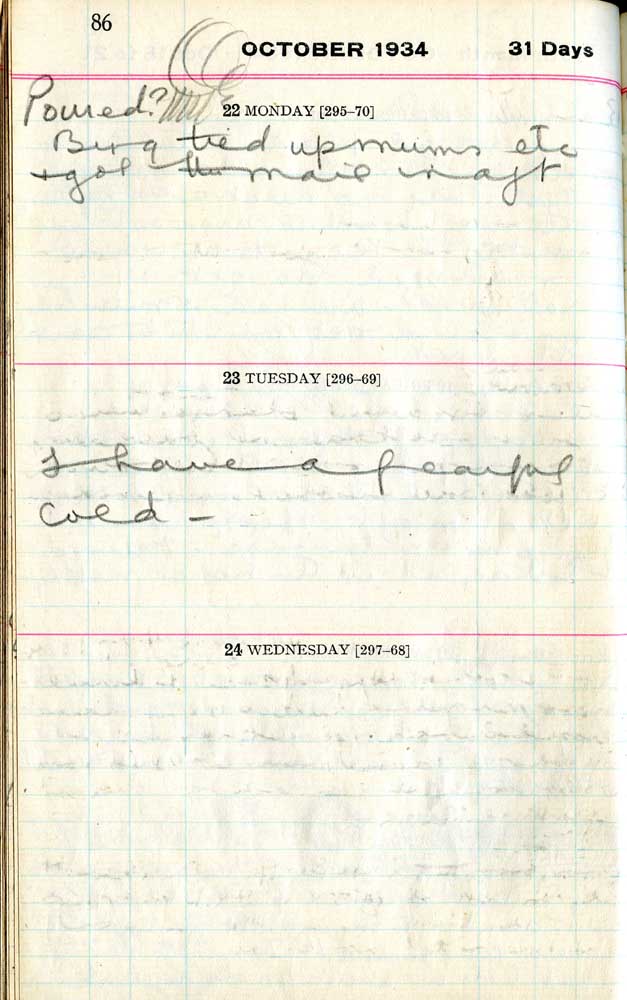 86
OCTOBER 1934 31 Days
Poured?
22 MONDAY [295–70]
tied up mums etc
+ got the mail in aft
23 TUESDAY [296–69]
I have a fearful
cold –
24 WEDNESDAY [297–68]